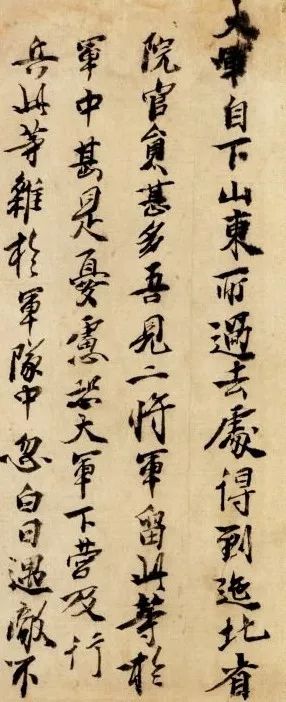 大軍自下山東所過去處得到迤北省
院官員甚多吾見二將軍留此等於
軍中甚是憂慮恐大軍下營及行
兵此等雜於軍隊中忽白日遇敵不